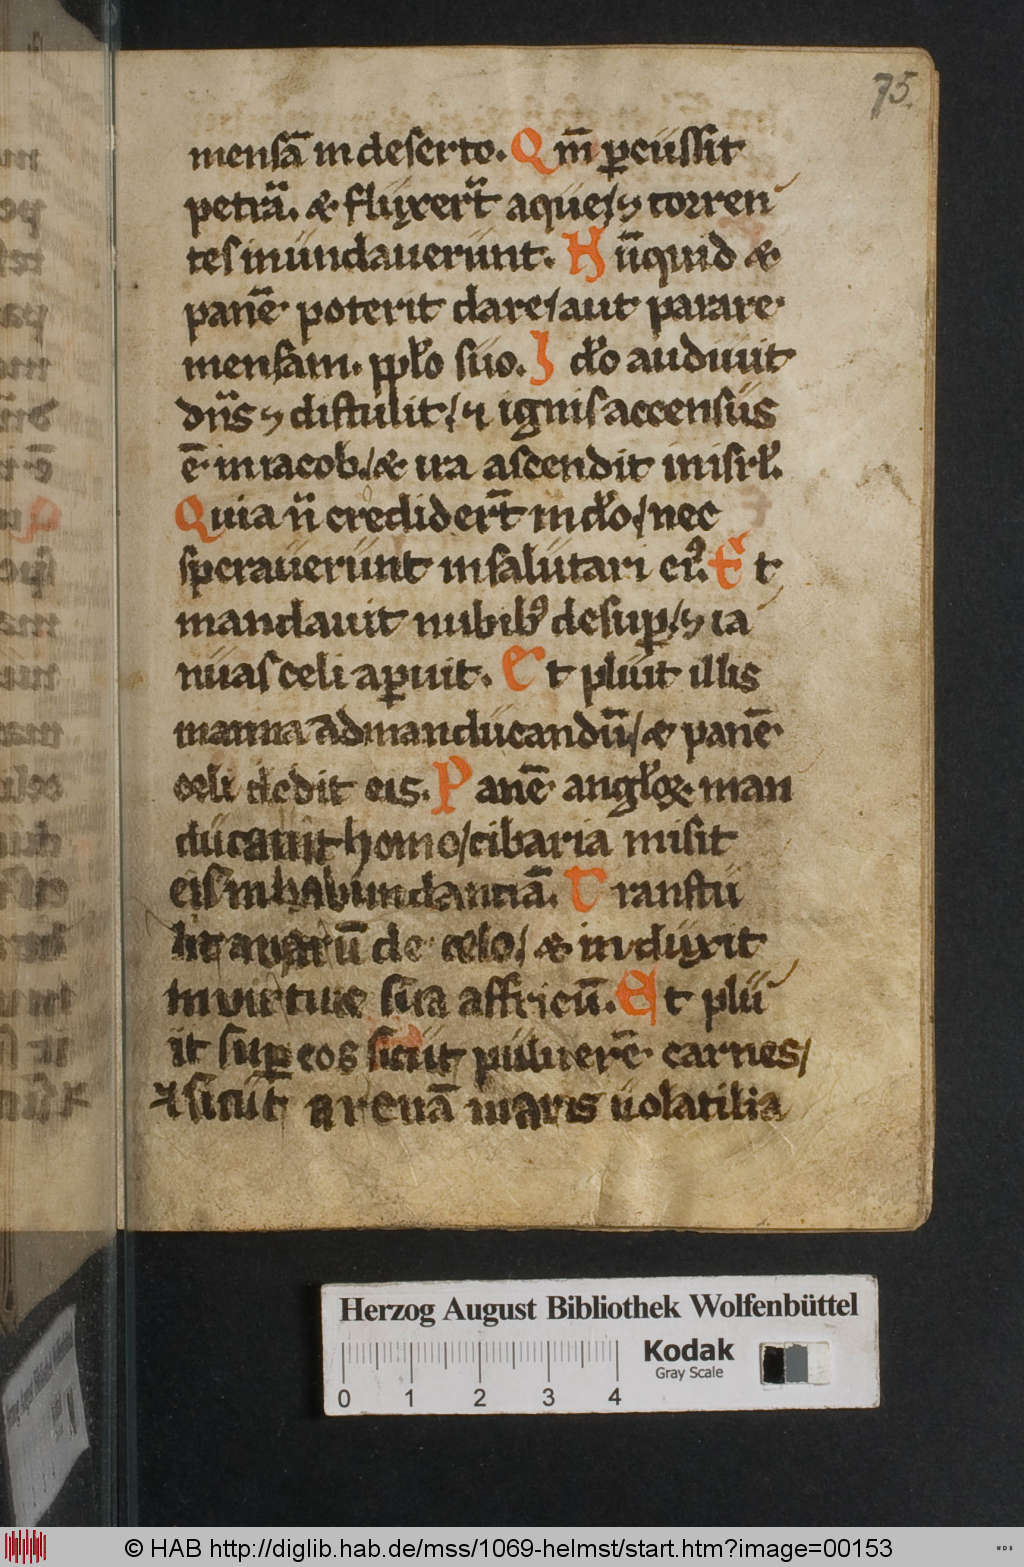 75.
mensā in deserto. Qm̄ ꝑcussit
petrā. & fluxerūt aque / ⁊ torren
tes inundauerunt. Nūquid &
panē poterit dare / aut parare
mensam. ppl̓o suo. Id̓o audiuit
dn̄s ⁊ distulit / ⁊ ignis accensus
ē in iacob / & ira ascendit in isrl̓.
Quia n̄ crediderūt in d̓o / nec
sperauerunt in salutari eiꝰ. Et
mandauit nubibꝰ desuꝑ / ⁊ ia
nuas celi aꝑuit. Et pluit illis
manna ad manducandū / & panē
celi dedit eis. Panē angl̓oꝝ man
ducauit homo / cibaria misit
eis in habundantiā. Transtu
lit austrū de celo / & induxit
in virtute sua affricū. Et plu
it suꝑ eos sicut puluerē carnes /
⁊ sicut arenā maris uolatilia
Herzog August Bibliothek Wolfenbüttel
Kodak
Gray Scale
0 1 2 3 4
© HAB http://diglib.hab.de/mss/1069-helmst/start.htm?image=00153